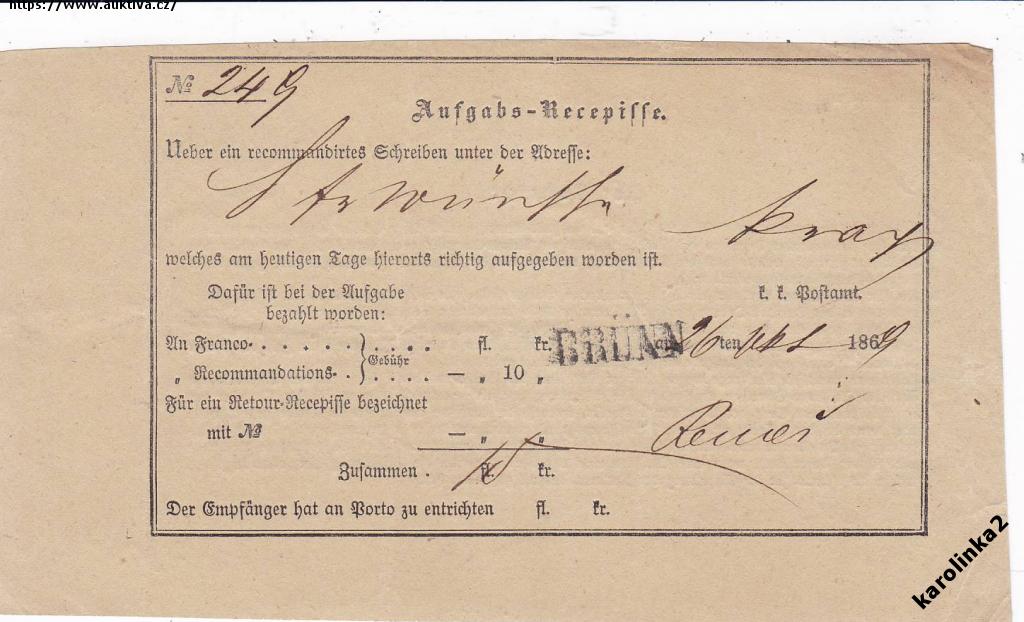 https://www.auktiva.cz/
№ 249
Aufgabs-Recepisse.
Ueber ein recommandirtes Schreiben unter der Adresse:
welches am heutigen Tage hierorts richtig aufgegeben worden ist.
Dafür ist bei der Aufgabe
bezahlt worden:
k. k. Postamt.
An Franco . . . . . } . . . . fl. kr. BRÜNN am 26 ten 1869
Gebühr
„ Recommandations- . } . . . . — „ 10 „
Für ein Retour-Recepisse bezeichnet
mit № — „ „
Zusammen . fl. kr.
Der Empfänger hat an Porto zu entrichten fl. kr.
karolinka2